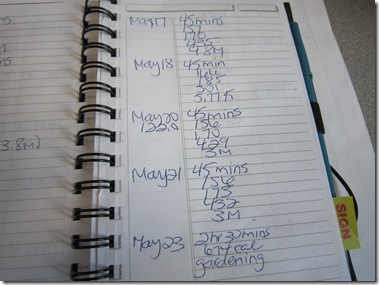 3.8M)
May 17 45mins
170
4.8M
May 18 45min
185
May 20 45mins
122.0 156
170
429
3M
May 21 45mins
156
173
432
3M.
May 23 2hr 32mins
674 cal
gardening
SIGN